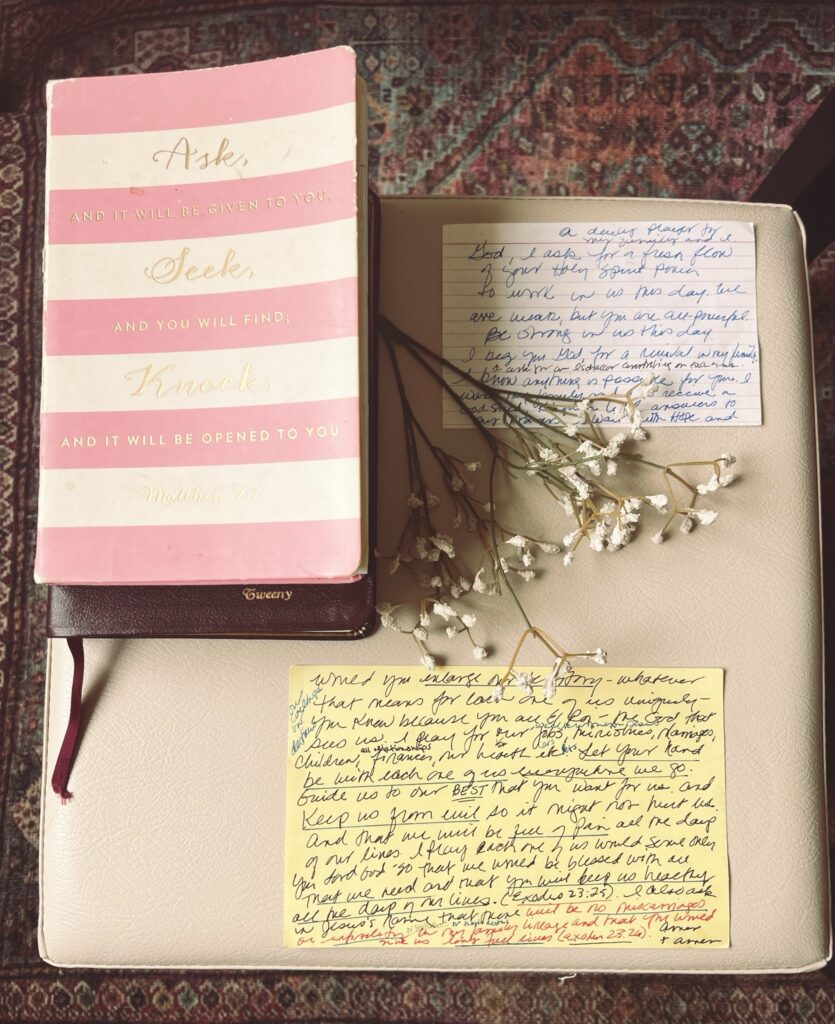 Ask,
AND IT WILL BE GIVEN TO YOU,
Seek,
AND YOU WILL FIND;
Knock,
AND IT WILL BE OPENED TO YOU
Matthew 7:7
Tweeny
a daily prayer for
my family and I.
God, I ask for a fresh flow
of your Holy Spirit power
to work in us this day. We
are weak, but you are all-powerful.
Be strong in us this day.
I beg you God for a revival in my family.
I know anything is possible for you. I
answers to
our prayers. I wait with Hope and
would you enlarge our territory - whatever
that means for each one of us uniquely -
you know because you are El Roi - the God that
sees us. I pray for our jobs, ministries, marriages,
all relationships
children, finances, our health etc. Let your hand
be with each one of us everywhere we go.
Guide us to our BEST that you want for us. and
Keep us from evil so it might not hurt us.
And that we will be free of pain all the days
of our lives. I pray each one of us would serve only
you Lord God so that we would be blessed with all
that we need and that you will keep us healthy
all the days of our lives. (Exodus 23:25). I also ask
in Jesus's name that there will be no miscarriages
or infertility in our family lineage and that you would
give us long full lives (Exodus 23:26). Amen
+ amen